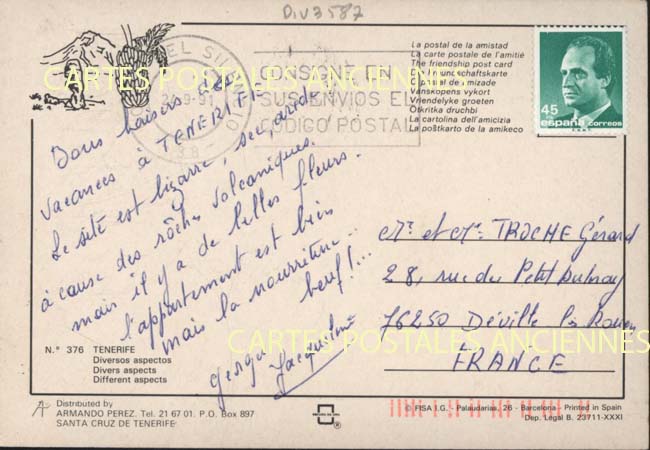 Div3587
EL SIL
9-91
38
CONSIGNE EN
SUS ENVIOS EL
CODIGO POSTAL
La postal de la amistad
La carte postale de l'amitié
The friendship post card
Vanskopens vykort
Vriendelyke groeten
Otkritka druchbi
La cartolina dell'amicizia
La poŝtkarto de la amikeco
45
españa correos
CARTES POSTALES ANCIENNES
Bons baisers des
vacances à TENERIFE
Le site est bizarre, sec aride
à cause des rôches volcaniques.
mais il y a de belles fleurs.
l'appartement est bien
mais la nourriture...
beuf!...
Jacqueline
Mr et Me TROCHE Gérard
28, rue du Petit Aulnay
76250 Déville les Rouen
FRANCE
CARTES POSTALES ANCIENNES
N.° 376 TENERIFE
Diversos aspectos
Divers aspects
Different aspects
Distributed by
ARMANDO PEREZ. Tel. 21 67 01. P.O. Box 897
SANTA CRUZ DE TENERIFE
®
© FISA I.G. - Palaudarias, 26 - Barcelona - Printed in Spain
Dep. Legal B. 23711-XXXI